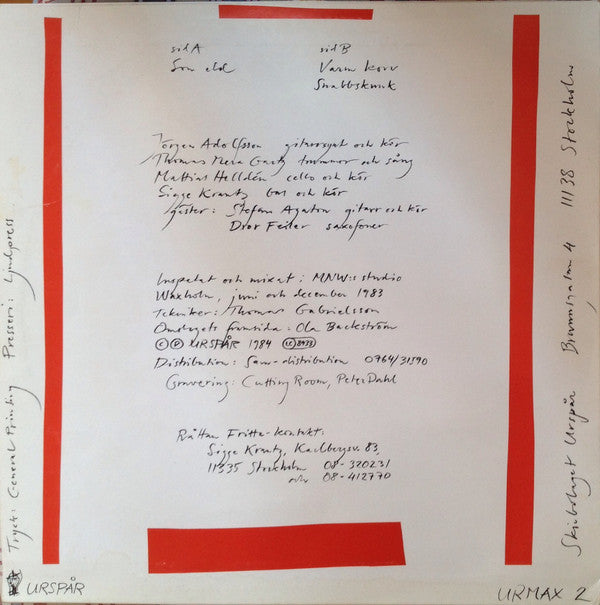 sid A
Son eld
sid B
Varm korv
Snabbskunk
Jörgen Adolfsson gitarrsynt och kör
Thomas Mera Gartz trummor och sång
Mattias Helldén cello och kör
Sigge Krantz bas och kör
gäster: Stefan Agaton gitarr och kör
Dror Feiler saxofoner
Inspelat och mixat i MNW:s studio
Waxholm, juni och december 1983
Tekniker: Thomas Gabrielsson
Omslagets framsida: Ola Backström
© ℗ URSPÅR 1984 LC 8978
Distribution: Sam-distribution 0764/31590
Gravering: Cutting Room, Peter Dahl
Råttan Fritta-kontakt:
Sigge Krantz, Karlbergsv. 83,
11335 Stockholm 08-320231
och 08-412770
Tryck: General Printing Presseri: Ljudpress
Skivbolaget Urspår Brunnsgatan 4 11138 Stockholm
URSPÅR
URMAX 2